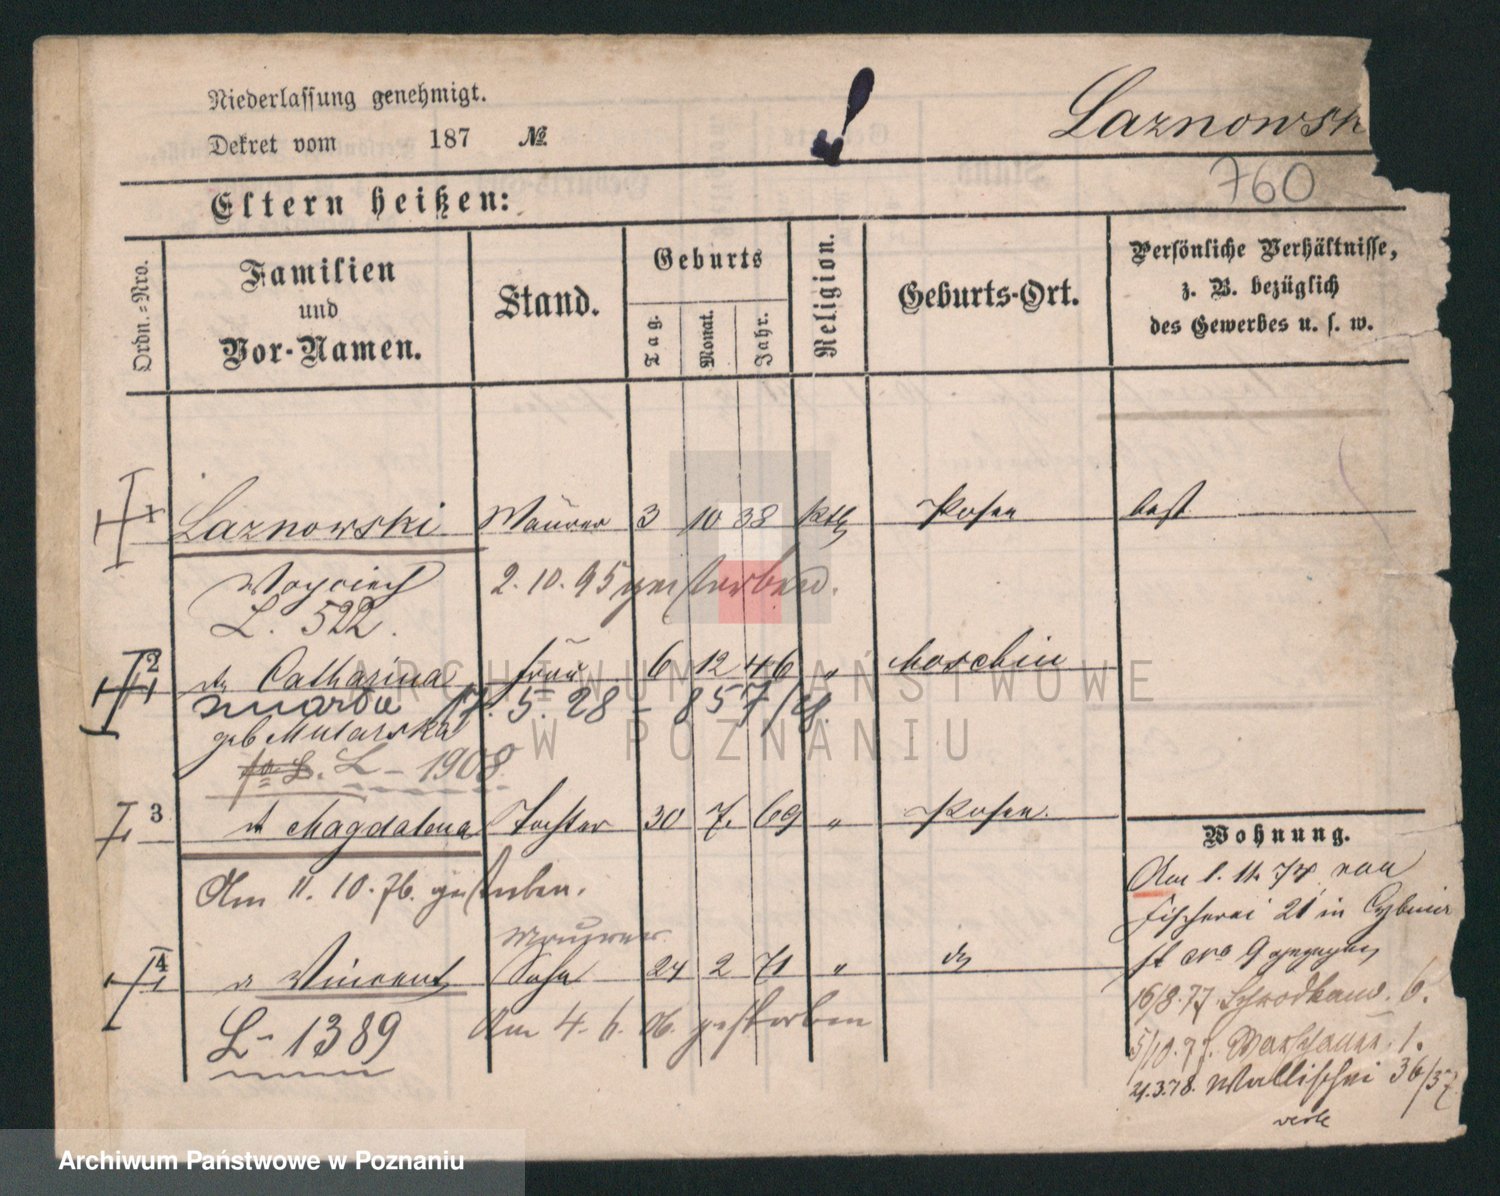 Niederlassung genehmigt.
Dekret vom 187 №
Laznowsk
760
Eltern heißen:
Ordn.-Nro.
Familien
und
Vor-Namen.
Stand.
Geburts
Tag.
Monat.
Jahr.
Religion.
Geburts-Ort.
Persönliche Verhältnisse,
z. B. bezüglich
des Gewerbes u. s. w.
1 Laznowski Maurer 3 10 38 kth Posen
Woyciech 2. 10. 95 gestorben.
L. 522.
2 Catharina Frau 6 12 46 " Moschin
zmarła 17. 5. 28 - 857/28.
geb Mularska
L - 1908
3 Magdalena Tochter 30 7. 69 " Posen.
Am 11. 10. 76. gestorben.
Maurer
4 Vincent Sohn 24 2 71 "
L - 1389 Am 4. 6. 06. gestorben
Wohnung.
Am 1. 11. 74 von
Fischerei 21 in Cybina
st No 9 gezogen
16/8. 77. Schrodkaw. 6.
5/10. 77. 1.
21.3.78. Wallischei 36/37
ARCHIWUM PAŃSTWOWE
W POZNANIU
Archiwum Państwowe w Poznaniu